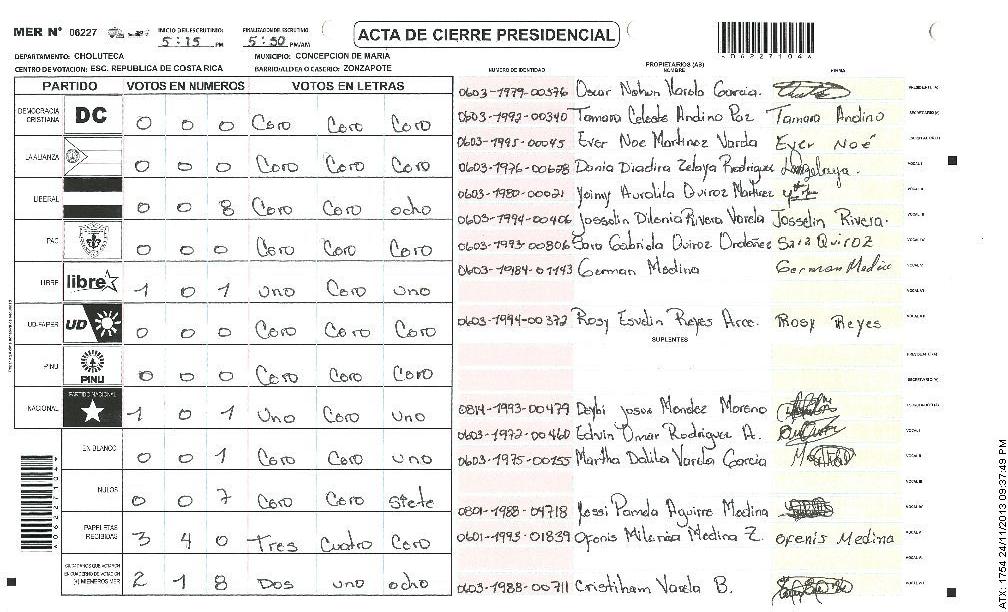 MER Nº 06227
INICIO DEL ESCRUTINIO: 5:15 PM
FINALIZACION DE ESCRUTINIO 5:50 PM/AM
ACTA DE CIERRE PRESIDENCIAL
DEPARTAMENTO: CHOLUTECA
MUNICIPIO: CONCEPCION DE MARIA
CENTRO DE VOTACION: ESC. REPUBLICA DE COSTA RICA
BARRIO/ALDEA O CASERIO: ZONZAPOTE
PARTIDO VOTOS EN NUMEROS VOTOS EN LETRAS
DEMOCRACIA CRISTIANA DC 0 0 0 Cero Cero Cero
LA ALIANZA 0 0 0 Cero Cero Cero
LIBERAL 0 0 8 Cero Cero ocho
PAC 0 0 0 Cero Cero Cero
LIBRE libre 1 0 1 uno Cero uno
UD-FAPER UD 0 0 0 Cero Cero Cero
PINU PINU 0 0 0 Cero Cero Cero
NACIONAL PARTIDO NACIONAL 1 0 1 Uno Cero uno
EN BLANCO 0 0 1 Cero Cero uno
NULOS 0 0 7 Cero Cero siete
PAPELETAS RECIBIDAS 3 4 0 Tres Cuatro Cero
CIUDADANOS QUE VOTARON EN CUADERNO DE VOTACION (+) MIEMBROS MER 2 1 8 Dos uno ocho
NUMERO DE IDENTIDAD PROPIETARIOS (AS) NOMBRE FIRMA
0603-1979-00376 Oscar Nahun Varela Garcia.
0603-1992-00340 Tamara Celeste Andino Paz Tamara Andino
0603-1995-00045 Ever Noe Martinez Varela Ever Noé
0603-1976-00628 Dania Diadira Zelaya Rodriguez
0603-1980-00021 Yoimy Auralila Quiroz Martinez
0603-1994-00406 Josselin Dilenia Rivera Varela Josselin Rivera.
0603-1993-00806 Sara Gabriela Quiroz Ordoñez Sara Quiroz
0603-1984-01143 German Medina German Medina
0603-1994-00372 Rosy Esvelin Reyes Arce. Rosy Reyes
SUPLENTES
0814-1993-00479 Deybi Josue Mendez Moreno
0603-1972-00460 Edvin Omar Rodriguez A.
0603-1975-00155 Martha Dalila Varela Garcia
0801-1988-04718 Jessi Pamela Aguirre Medina
0601-1993-01839 Ofenis Milenia Medina Z. Ofenis Medina
0603-1988-00711 Cristiham Varela B.
ATX: 1754 24/11/2013 09:37:49 PM